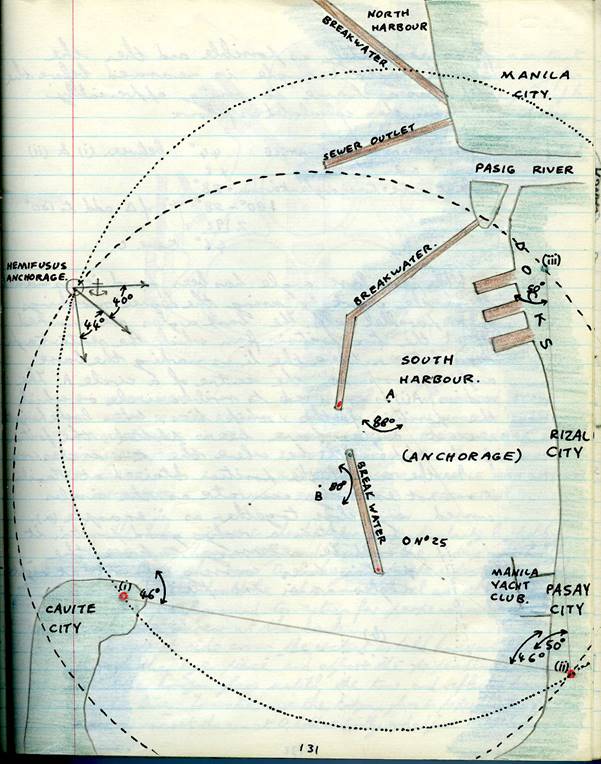 NORTH
HARBOUR
BREAKWATER
MANILA
CITY.
SEWER OUTLET
PASIG RIVER
HEMIFUSUS
ANCHORAGE.
40°
44°
BREAKWATER.
DOCKS
(iii)
SOUTH
HARBOUR.
A
88°
(ANCHORAGE)
RIZAL
CITY
B
80°
BREAK WATER
O Nº 25
MANILA
YACHT
CLUB.
PASAY
CITY
(i)
46°
CAVITE
CITY
50°
46°
(ii)
131